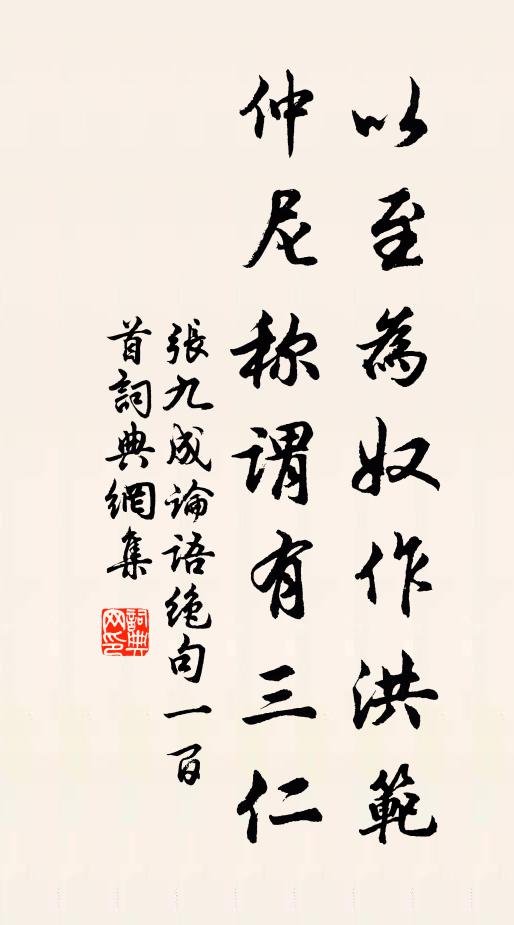 以至為奴作洪範
仲尼称謂有三仁
張九成論語绝句一百
首詞典網集
詞典
网印